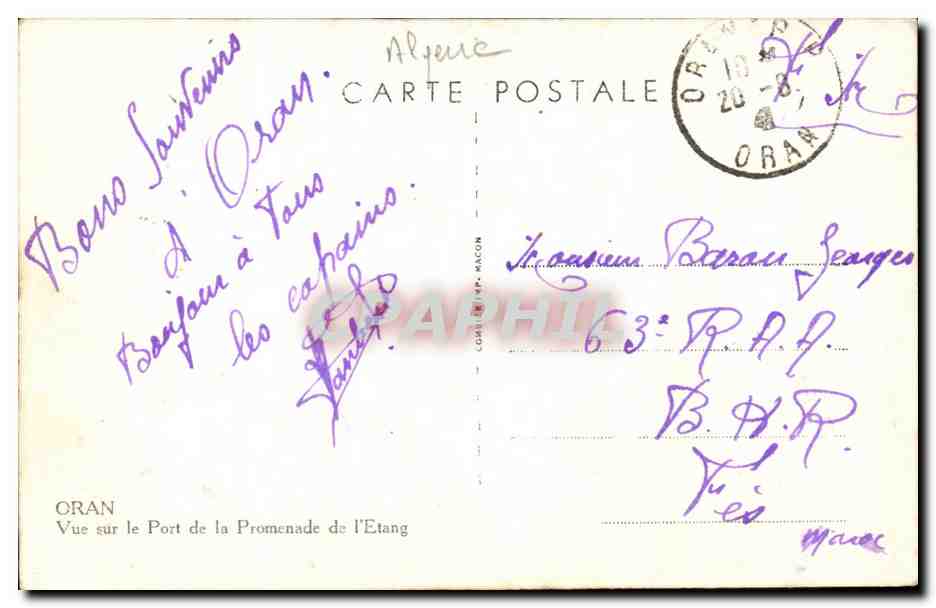 Algerie
CARTE POSTALE
ORAN
10
20 -8
ORAN
Bons Souvenirs
d'Oran.
Bonjour à Tous
les copains.
Monsieur Baron Georges
63e R.A.A.
B.H.R.
Fès
Maroc
COMBIER IMP. MACON
CPARAMA
CPAPHIL
ORAN
Vue sur le Port de la Promenade de l'Etang